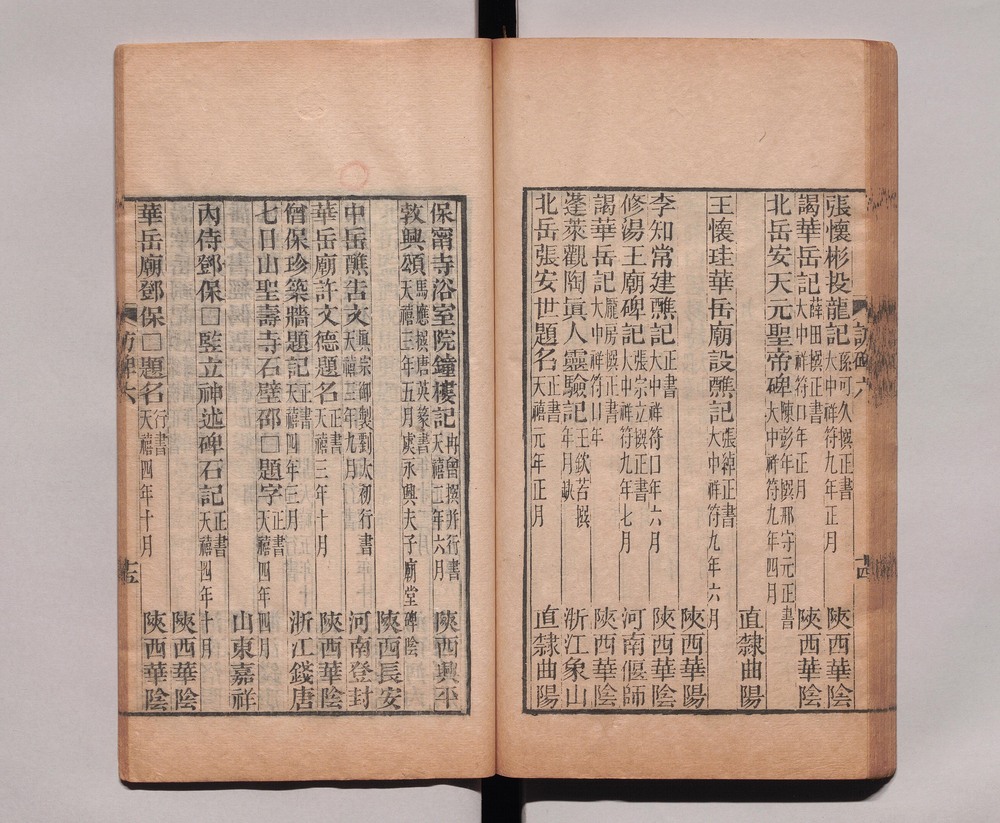 張懷彬投龍記 孫可久撰正書 大中祥符九年正月 陝西華陰
謁華岳記 薛田撰正書 大中祥符口年正月 陝西華陰
北岳安天元聖帝碑 陳彭年撰邢守元正書 大中祥符九年四月
直隸曲陽
王懷珪華岳廟設醮記 張綽正書 大中祥符九年六月
陝西華陽
李知常建醮記 正書 大中祥符口年六月 陝西華陰
修湯王廟碑記 張宗立撰正書 大中祥符九年七月 河南偃師
謁華岳記 龐房撰正書 大中祥符口年 陝西華陰
蓬萊觀陶眞人靈驗記 王欽若撰 年月缺 浙江象山
北岳張安世題名 正書 天禧元年正月 直隸曲陽
訪碑六
十四
保甯寺浴室院鐘樓記 冉曾撰并行書 天禧二年六月 陝西興平
敦興頌 馬應撰唐英篆書 天禧三年五月虞永興夫子廟堂碑陰
陝西長安
中岳醮告文 眞宗御製劉太初行書 天禧三年九月 河南登封
華岳廟許文德題名 正書 天禧三年十月 陝西華陰
僧保珍築牆題記 正書 天禧四年三月 浙江錢唐
七日山聖壽寺石壁邵□題字 天禧四年四月
山東嘉祥
內侍鄧保□監立神述碑石記 正書 天禧四年十月
陝西華陰
華岳廟鄧保□題名 行書 天禧四年十月 陝西華陰
訪碑六
十五